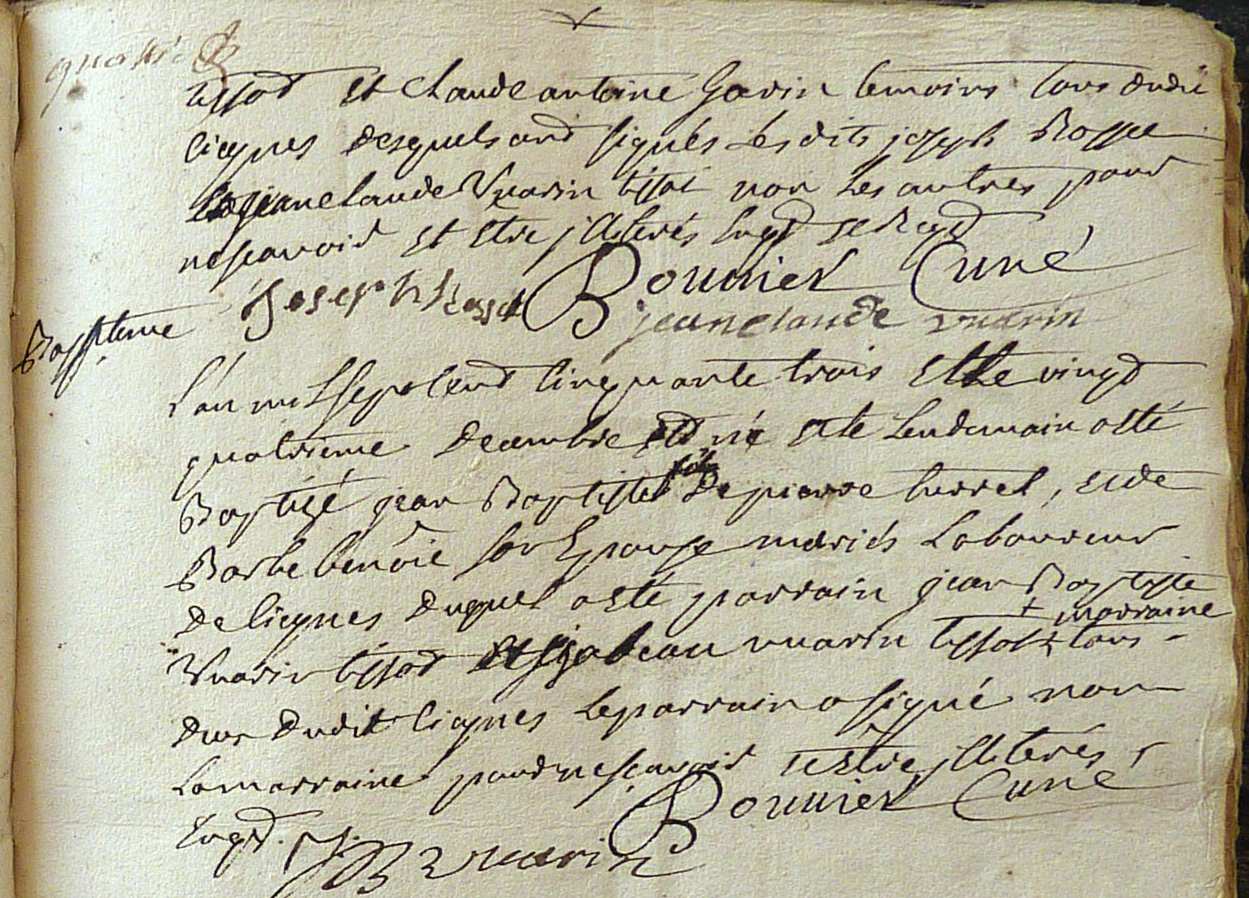 tissot et Claude antoine Gavin temoins tous dudit
liesnes desquels ont signés lesdits joseph Rosse
et jeanclaude Vuarin tissot non les autres pour
nescavoir et etre jlliterés Enqs et Reqs
Joseph Rosset Bouvier Curé
jeanclaude vuarin
Bapteme
L'an mil sept cent cinquante trois et le vingt
quatrieme decembre est né et le lendemain a eté
Baptizé jean Baptiste fils de pierre turrel, et de
Barbe benoie son Epouse mariés Laboureur
de liesnes duquel a eté parrain jean Baptiste
Vuarin tissot et jsabeau vuarin tissot + marraine tous
deux dudit liesnes le parrain a signé non
la marraine pour nesçavoir et etre jlliterés
Enqs.
Bouvier Curé
JB vuarin